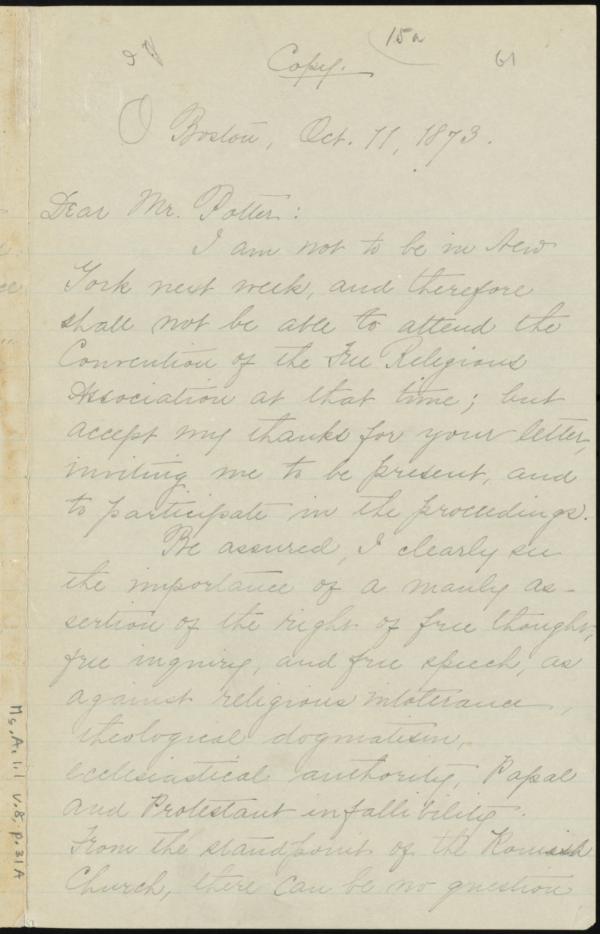 15a
61
Copy.
Boston, Oct. 11, 1873.
Dear Mr. Potter:
I am not to be in New
York next week, and therefore
shall not be able to attend the
Convention of the Free Religious
Association at that time; but
accept my thanks for your letter,
inviting me to be present, and
to participate in the proceedings.
Be assured, I clearly see
the importance of a manly as-
sertion of the right of free thought,
free inquiry, and free speech, as
against religious intolerance,
theological dogmatism,
ecclesiastical authority, Papal
and Protestant infallibility.
From the standpoint of the Romish
Church, there can be no question
Ms. A. 1.1 v. 8, p. 31A